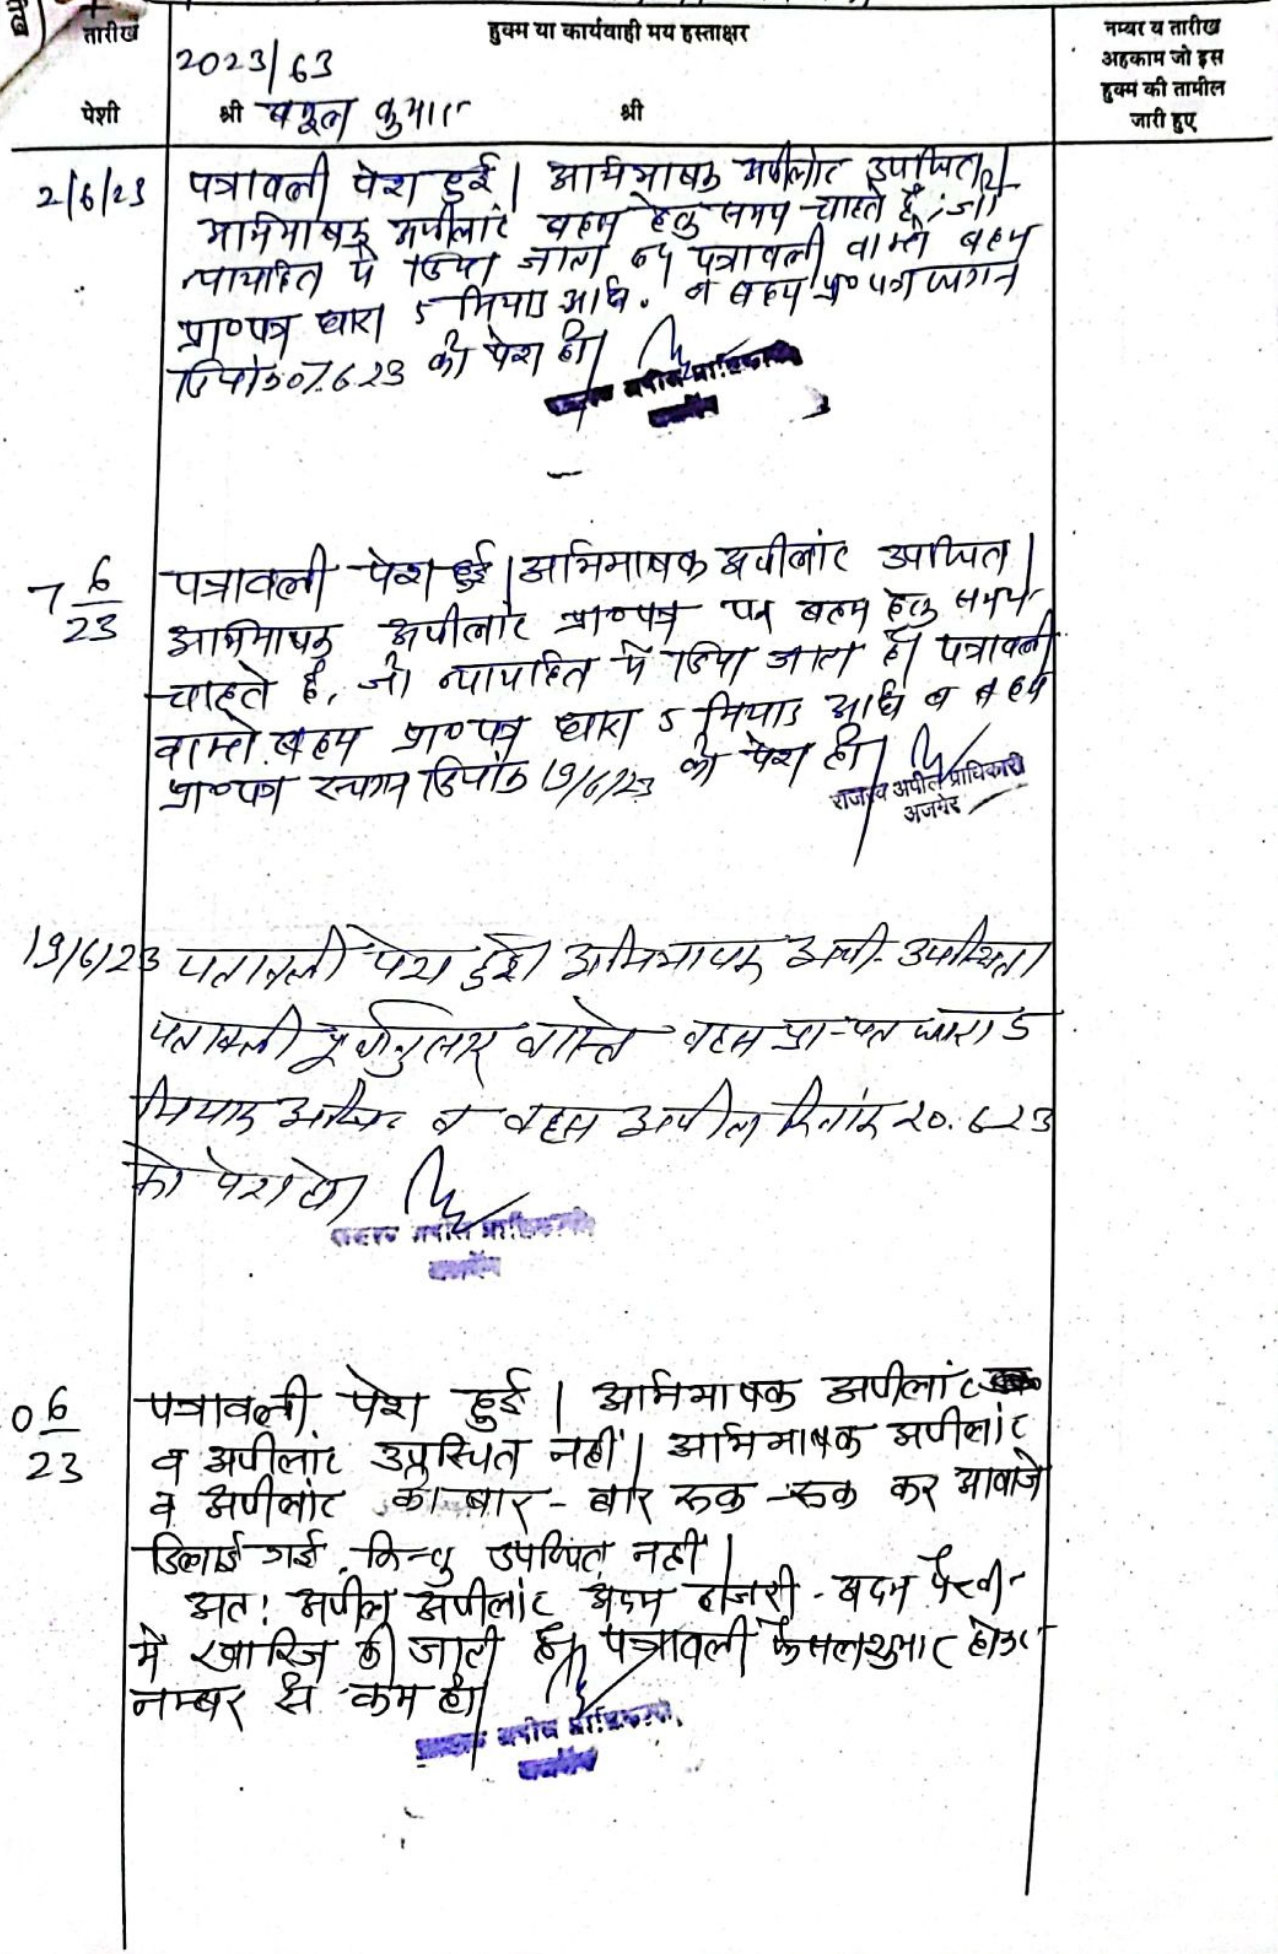 तारीख
हुक्म या कार्यवाही मय हस्ताक्षर
नम्बर व तारीख
अहकाम जो इस
हुक्म की तामील
जारी हुए
2023/63
पेशी
श्री कुमार श्री
2/6/23 पत्रावली पेश हुई। अभिभाषक अपीलांट उपस्थित।
अभिभाषक अपीलांट बहस हेतु समय चाहते है, जो
न्यायहित मे दिया जाता पत्रावली वास्ते बहस
प्रा०पत्र धारा 5 मियाद अधि. व बहस प्रा० पत्र स्थगन
दिनांक 07.6.23 को पेश हो।
7 6/23 पत्रावली पेश हुई। अभिभाषक अपीलांट उपस्थित।
अभिभाषक अपीलांट प्रा०पत्र पर बहस हेतु समय
चाहते है, जो न्यायहित मे दिया जाता है। पत्रावली
वास्ते बहस प्रा०पत्र धारा 5 मियाद अधि व बहस
प्रा०पत्र स्थगन दिनांक 19/6/23 को पेश हो।
राजस्व अपील प्राधिकारी
अजमेर
19/6/23 पत्रावली पेश हुई। अभिभाषक अपी. उपस्थित।
पत्रावली पूर्वानुसार वास्ते बहस प्रा-पत्र धारा 5
मियाद अधि. व बहस अपील दिनांक 20.6.23
को पेश हो।
0 6/23 पत्रावली पेश हुई। अभिभाषक अपीलांट
व अपीलांट उपस्थित नहीं। अभिभाषक अपीलांट
व अपीलांट को बार - बार रूक - रूक कर आवाजे
दिलाई गई. किन्तु उपस्थित नहीं।
अत: अपील अपीलांट अदम हाजरी - अदम पैरवी
मे खारिज की जाती है। पत्रावली फैसलशुमार होकर
नम्बर से कम हो।